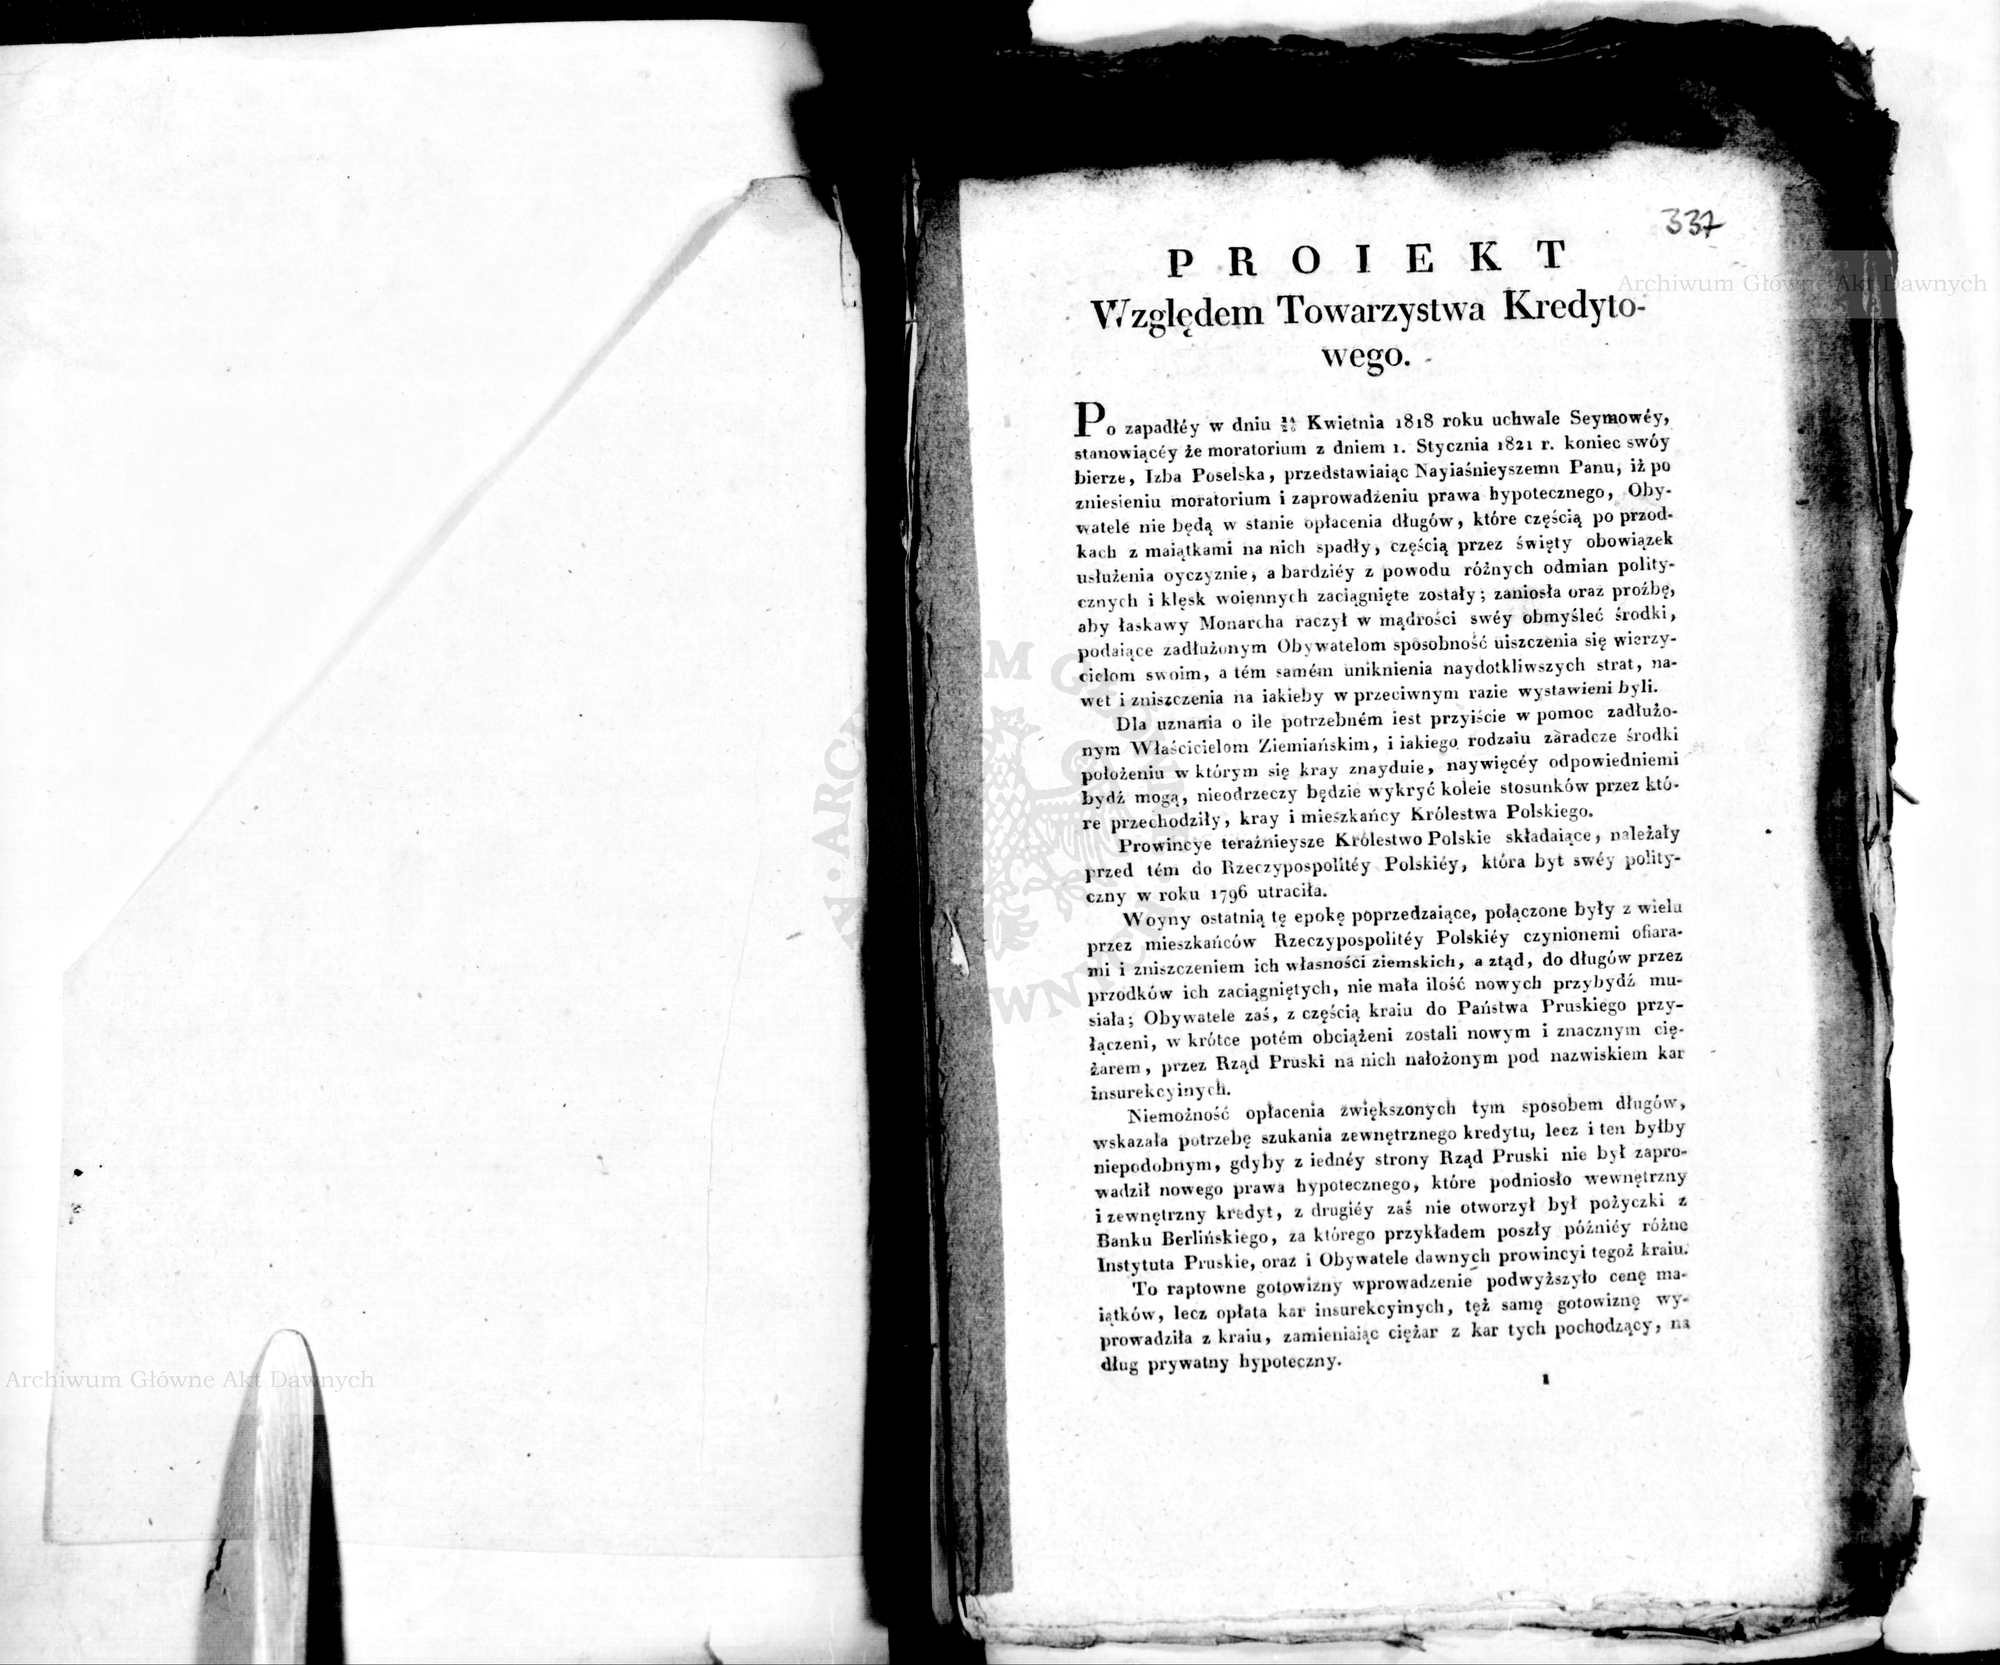 337
PROIEKT
Względem Towarzystwa Kredyto-
wego.
Po zapadłéy w dniu 14/26 Kwietnia 1818 roku uchwale Seymowéy,
stanowiącéy że moratorium z dniem 1. Stycznia 1821 r. koniec swóy
bierze, Izba Poselska, przedstawiaiąc Nayiaśnieyszemu Panu, iż po
zniesieniu moratorium i zaprowadzeniu prawa hypotecznego, Oby-
watele nie będą w stanie opłacenia długów, które częścią po przod-
kach z maiątkami na nich spadły, częścią przez święty obowiązek
usłużenia oyczyznie, a bardziéy z powodu różnych odmian polity-
cznych i klęsk woiennych zaciągnięte zostały; zaniosła oraz proźbę,
aby łaskawy Monarcha raczył w mądrości swéy obmyśleć środki,
podaiące zadłużonym Obywatelom sposobność uiszczenia się wierzy-
cielom swoim, a tém samém uniknienia naydotkliwszych strat, na-
wet i zniszczenia na iakieby w przeciwnym razie wystawieni byli.
Dla uznania o ile potrzebném iest przyiście w pomoc zadłużo-
nym Właścicielom Ziemiańskim, i iakiego rodzaiu zaradcze środki
położeniu w którym się kray znayduie, naywięcéy odpowiedniemi
bydź mogą, nieodrzeczy będzie wykryć koleie stosunków przez któ-
re przechodziły, kray i mieszkańcy Królestwa Polskiego.
Prowincye teraźnieysze Królestwo Polskie składaiące, należały
przed tém do Rzeczypospolitéy Polskiéy, która byt swéy polity-
czny w roku 1796 utraciła.
Woyny ostatnią tę epokę poprzedzaiące, połączone były z wielu
przez mieszkańców Rzeczypospolitéy Polskiéy czynionemi ofiara-
mi i zniszczeniem ich własności ziemskich, a ztąd, do długów przez
przodków ich zaciągniętych, nie mała ilość nowych przybydź mu-
siała; Obywatele zaś, z częścią kraiu do Państwa Pruskiego przy-
łączeni, w krótce potém obciążeni zostali nowym i znacznym cię-
żarem, przez Rząd Pruski na nich nałożonym pod nazwiskiem kar
insurekcyinych.
Niemożność opłacenia zwiększonych tym sposobem długów,
wskazała potrzebę szukania zewnętrznego kredytu, lecz i ten byłby
niepodobnym, gdyby z iednéy strony Rząd Pruski nie był zapro-
wadził nowego prawa hypotecznego, które podniosło wewnętrzny
i zewnętrzny kredyt, z drugiéy zaś nie otworzył był pożyczki z
Banku Berlińskiego, za którego przykładem poszły późniéy różne
Instytuta Pruskie, oraz i Obywatele dawnych prowincyi tegoż kraiu.
To raptowne gotowizny wprowadzenie podwyższyło cenę ma-
iątków, lecz opłata kar insurekcyinych, też samę gotowiznę wy-
prowadziła z kraiu, zamieniaiąc ciężar z kar tych pochodzący, na
dług prywatny hypoteczny.
1
Archiwum Główne Akt Dawnych
Archiwum Główne Akt Dawnych